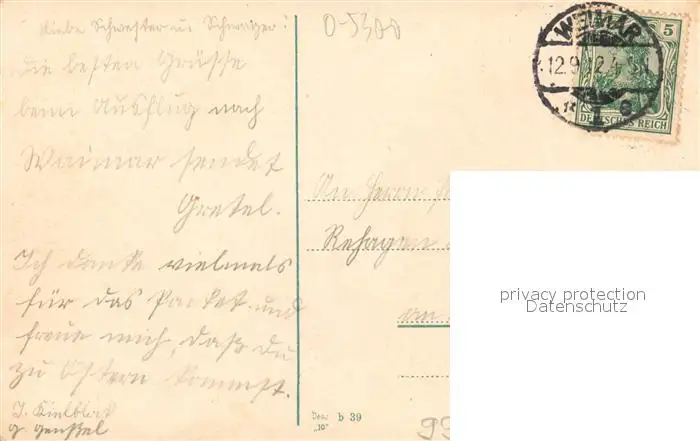 Liebe Schwester u. Schwager!
die besten Grüsse
beim Ausflug nach
Waimar sendet
Gretel.
Ich danke vielmals
für das Packet und
freue mich, dass du
zu Ostern kommst.
0-5300
WEIMAR
12.9.12.4
DEUTSCHES REICH
5
An Herrn
Rehagen
an
privacy protection
Datenschutz
b 39
"10"